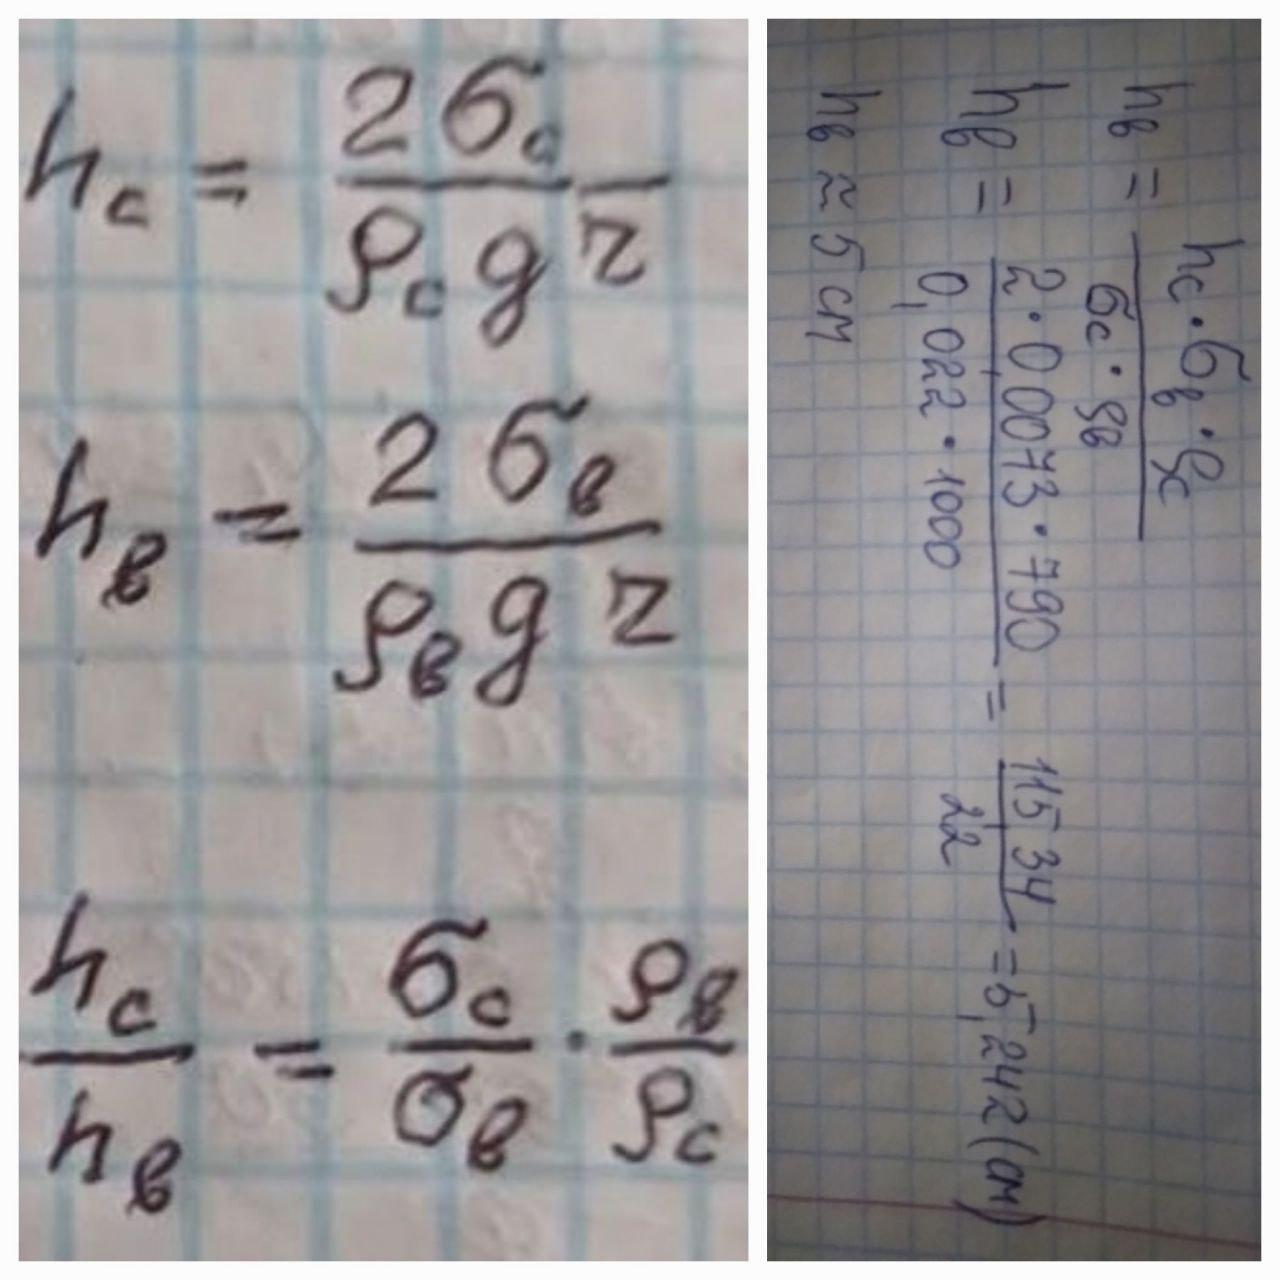 hс = 2σс / ρс g r
hв = 2σв / ρв g r
hс / hв = σс / σв · ρв / ρс
hв = hс · σв · ρс / σс · ρв
hв = 2 · 0,0073 · 790 / 0,022 · 1000 = 115,34 / 22 = 5,242 (см)
hв ≈ 5 см